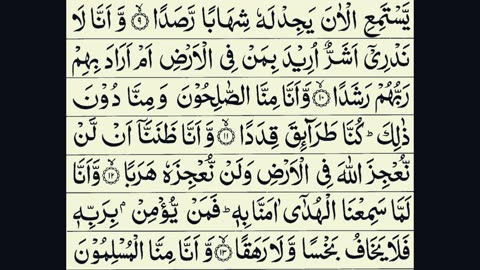 یَّسۡتَمِعِ الۡاٰنَ یَجِدۡ لَهٗ شِهَابًا رَّصَدًا ۙ‏﴿۹﴾ وَّ اَنَّا لَا
نَدۡرِیۡۤ اَشَرٌّ اُرِیۡدَ بِمَنۡ فِی الۡاَرۡضِ اَمۡ اَرَادَ بِهِمۡ
رَبُّهُمۡ رَشَدًا ۙ‏﴿۱۰﴾ وَّ اَنَّا مِنَّا الصّٰلِحُوۡنَ وَ مِنَّا دُوۡنَ
ذٰلِكَ‌ ؕ كُنَّا طَرَآئِقَ قِدَدًا ۙ‏﴿۱۱﴾ وَّ اَنَّا ظَنَنَّاۤ اَنۡ لَّنۡ
نُّعۡجِزَ اللّٰهَ فِی الۡاَرۡضِ وَ لَنۡ نُّعۡجِزَهٗ هَرَبًا ۙ‏﴿۱۲﴾ وَّ اَنَّا
لَمَّا سَمِعۡنَا الۡهُدٰٓی اٰمَنَّا بِهٖ‌ ؕ فَمَنۡ یُّؤۡمِنۡۢ بِرَبِّهٖ
فَلَا یَخَافُ بَخۡسًا وَّ لَا رَهَقًا ۙ‏﴿۱۳﴾ وَّ اَنَّا مِنَّا الۡمُسۡلِمُوۡنَ